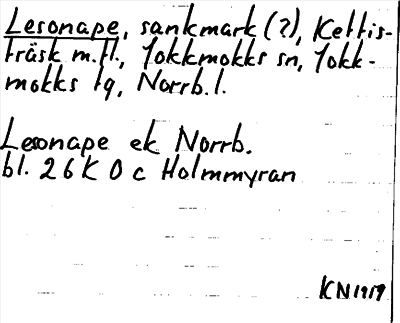 Lesonape, sankmark (?), Kettis-
träsk m.fl., Jokkmokks sn, Jokk-
mokks tg, Norrb. l.
Lesonape ek Norrb.
bl. 26 K 0 c Holmmyran
KN 1919